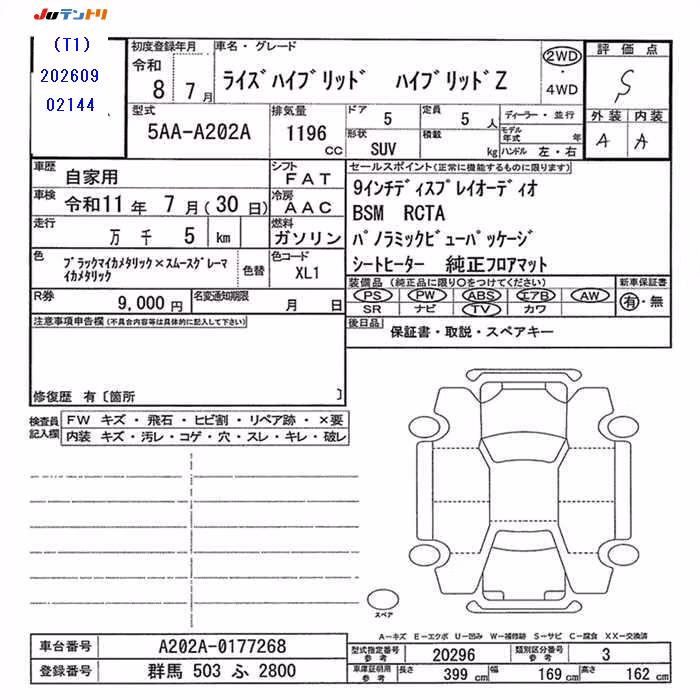 JUテントリ
(T1)
202609
02144
初度登録年月
令和
8 7月
車名・グレード
ライズハイブリッド ハイブリッドZ
2WD
・
4WD
評価点
S
外装 内装
A A
型式
5AA-A202A
排気量
1196 CC
ドア 5
定員 5 人
形状 SUV
積載 kg
ディーラー・並行
モデル年式 年
ハンドル 左・右
車歴 自家用
シフト FAT
車検 令和11年 7月(30日)
冷房 AAC
走行 万 千 5 km
燃料 ガソリン
色 ブラックマイカメタリック×スムースグレーマイカメタリック
色替
色コード XL1
R券 9,000円
名変通知期限 月 日
セールスポイント(正常に機能するものに限ります)
9インチディスプレイオーディオ
BSM RCTA
パノラミックビューパッケージ
シートヒーター 純正フロアマット
装備品 (純正品に限り○をつけてください)
PS PW ABS エアB AW
SR ナビ TV カワ
新車保証書
有・無
後日品 保証書・取説・スペアキー
注意事項申告欄(不具合内容等は具体的に記入して下さい)
修復歴 有〔箇所 〕
検査員記入欄
FW キズ・飛石・ヒビ割・リペア跡・×要
内装 キズ・汚レ・コゲ・穴・スレ・キレ・破レ
スペア
A−キズ E−エクボ U−凹み W−補修跡 S−サビ C−腐食 XX−交換済
車台番号 A202A-0177268
登録番号 群馬 503 ふ 2800
型式指定番号 参考 20296
類別区分番号 参考 3
車庫証明用 参考 長さ 399 cm 幅 169 cm 高さ 162 cm